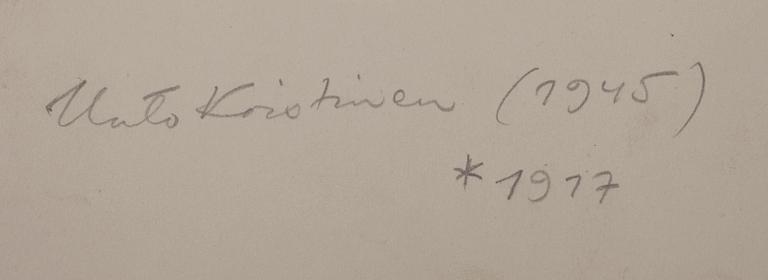 Unto Koistinen (1945)
*1917